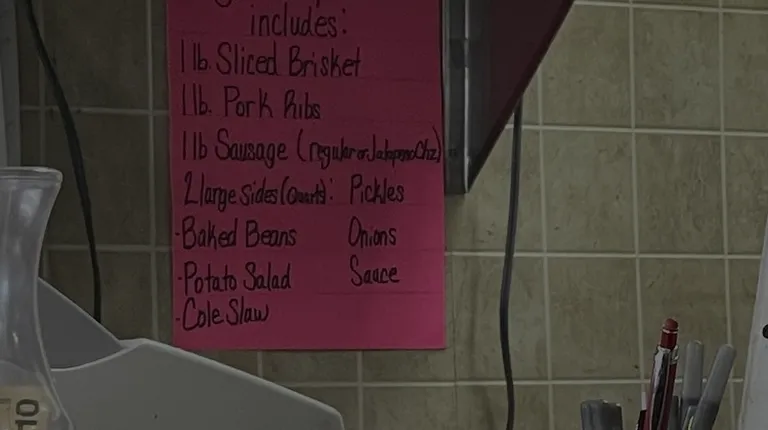 includes:
1 lb. Sliced Brisket
1 lb. Pork Ribs
1 lb Sausage (regular or Jalapeno Chz)
2 large sides (Quart): Pickles
-Baked Beans Onions
-Potato Salad Sauce
-Cole Slaw
10